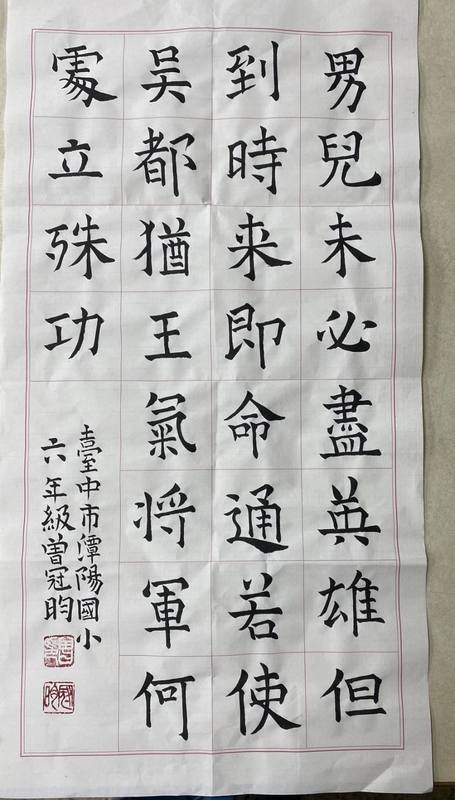 男兒未必盡英雄但
到時来即命通若使
吳都猶王氣將軍何
處立殊功
臺中市潭陽國小
六年級曾冠昀